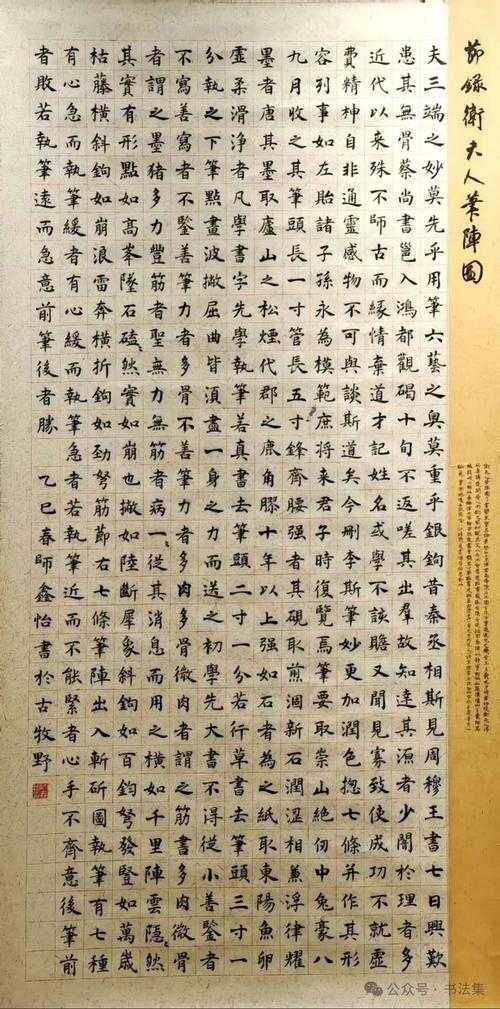 節錄衛夫人筆陣圖
夫三端之妙莫先乎用筆六藝之奧莫重乎銀鉤昔秦丞相斯見周穆王書七日興歎
患其無骨蔡尚書邕入鴻都觀碣十旬不返嗟其出羣故知達其源者少闇於理者多
近代以來殊不師古而緣情棄道才記姓名或學不該贍又聞見寡致使成功不就虛
費精神自非通靈感物不可與談斯道矣今刪李斯筆妙更加潤色揔七條并作其形
容列事如左貽諸子孫永為模範庶將來君子時復覽焉筆要取崇山絕仞中兔豪八
九月收之其筆頭長一寸管長五寸鋒齊腰強者其硯取煎涸新石潤澀相兼浮律耀
墨者唐其墨取廬山之松煙代郡之鹿角膠十年以上强如石者為之紙取東陽魚卵
虛柔滑淨者凡學書字先學執筆善真書去筆頭二寸一分若行草書去筆頭三寸一
分執之下筆點畫波撇屈曲皆須盡一身之力而送之初學先大書不得從小善鑒者
不寫善寫者不鑒善筆力者多骨不善筆力者多肉多骨微肉者謂之筋書多肉微骨
者謂之墨豬多力豐筋者聖無力無筋者病一從其消息而用之橫如千里陣雲隱然
其實有形點如高峯墜石磕然實如崩也撇如陸斷犀象斜鉤如百鈞弩發豎如萬歲
枯藤橫斜鉤如崩浪雷奔橫折鉤如勁弩筋節右七條筆陣出入斬斫圖執筆有七種
有心急而執筆緩者有心緩而執筆急者若執筆近而不能緊者心手不齊意後筆前
者敗若執筆遠而急意前筆後者勝 乙巳春師鑫怡書於古牧野
公众号·书法集